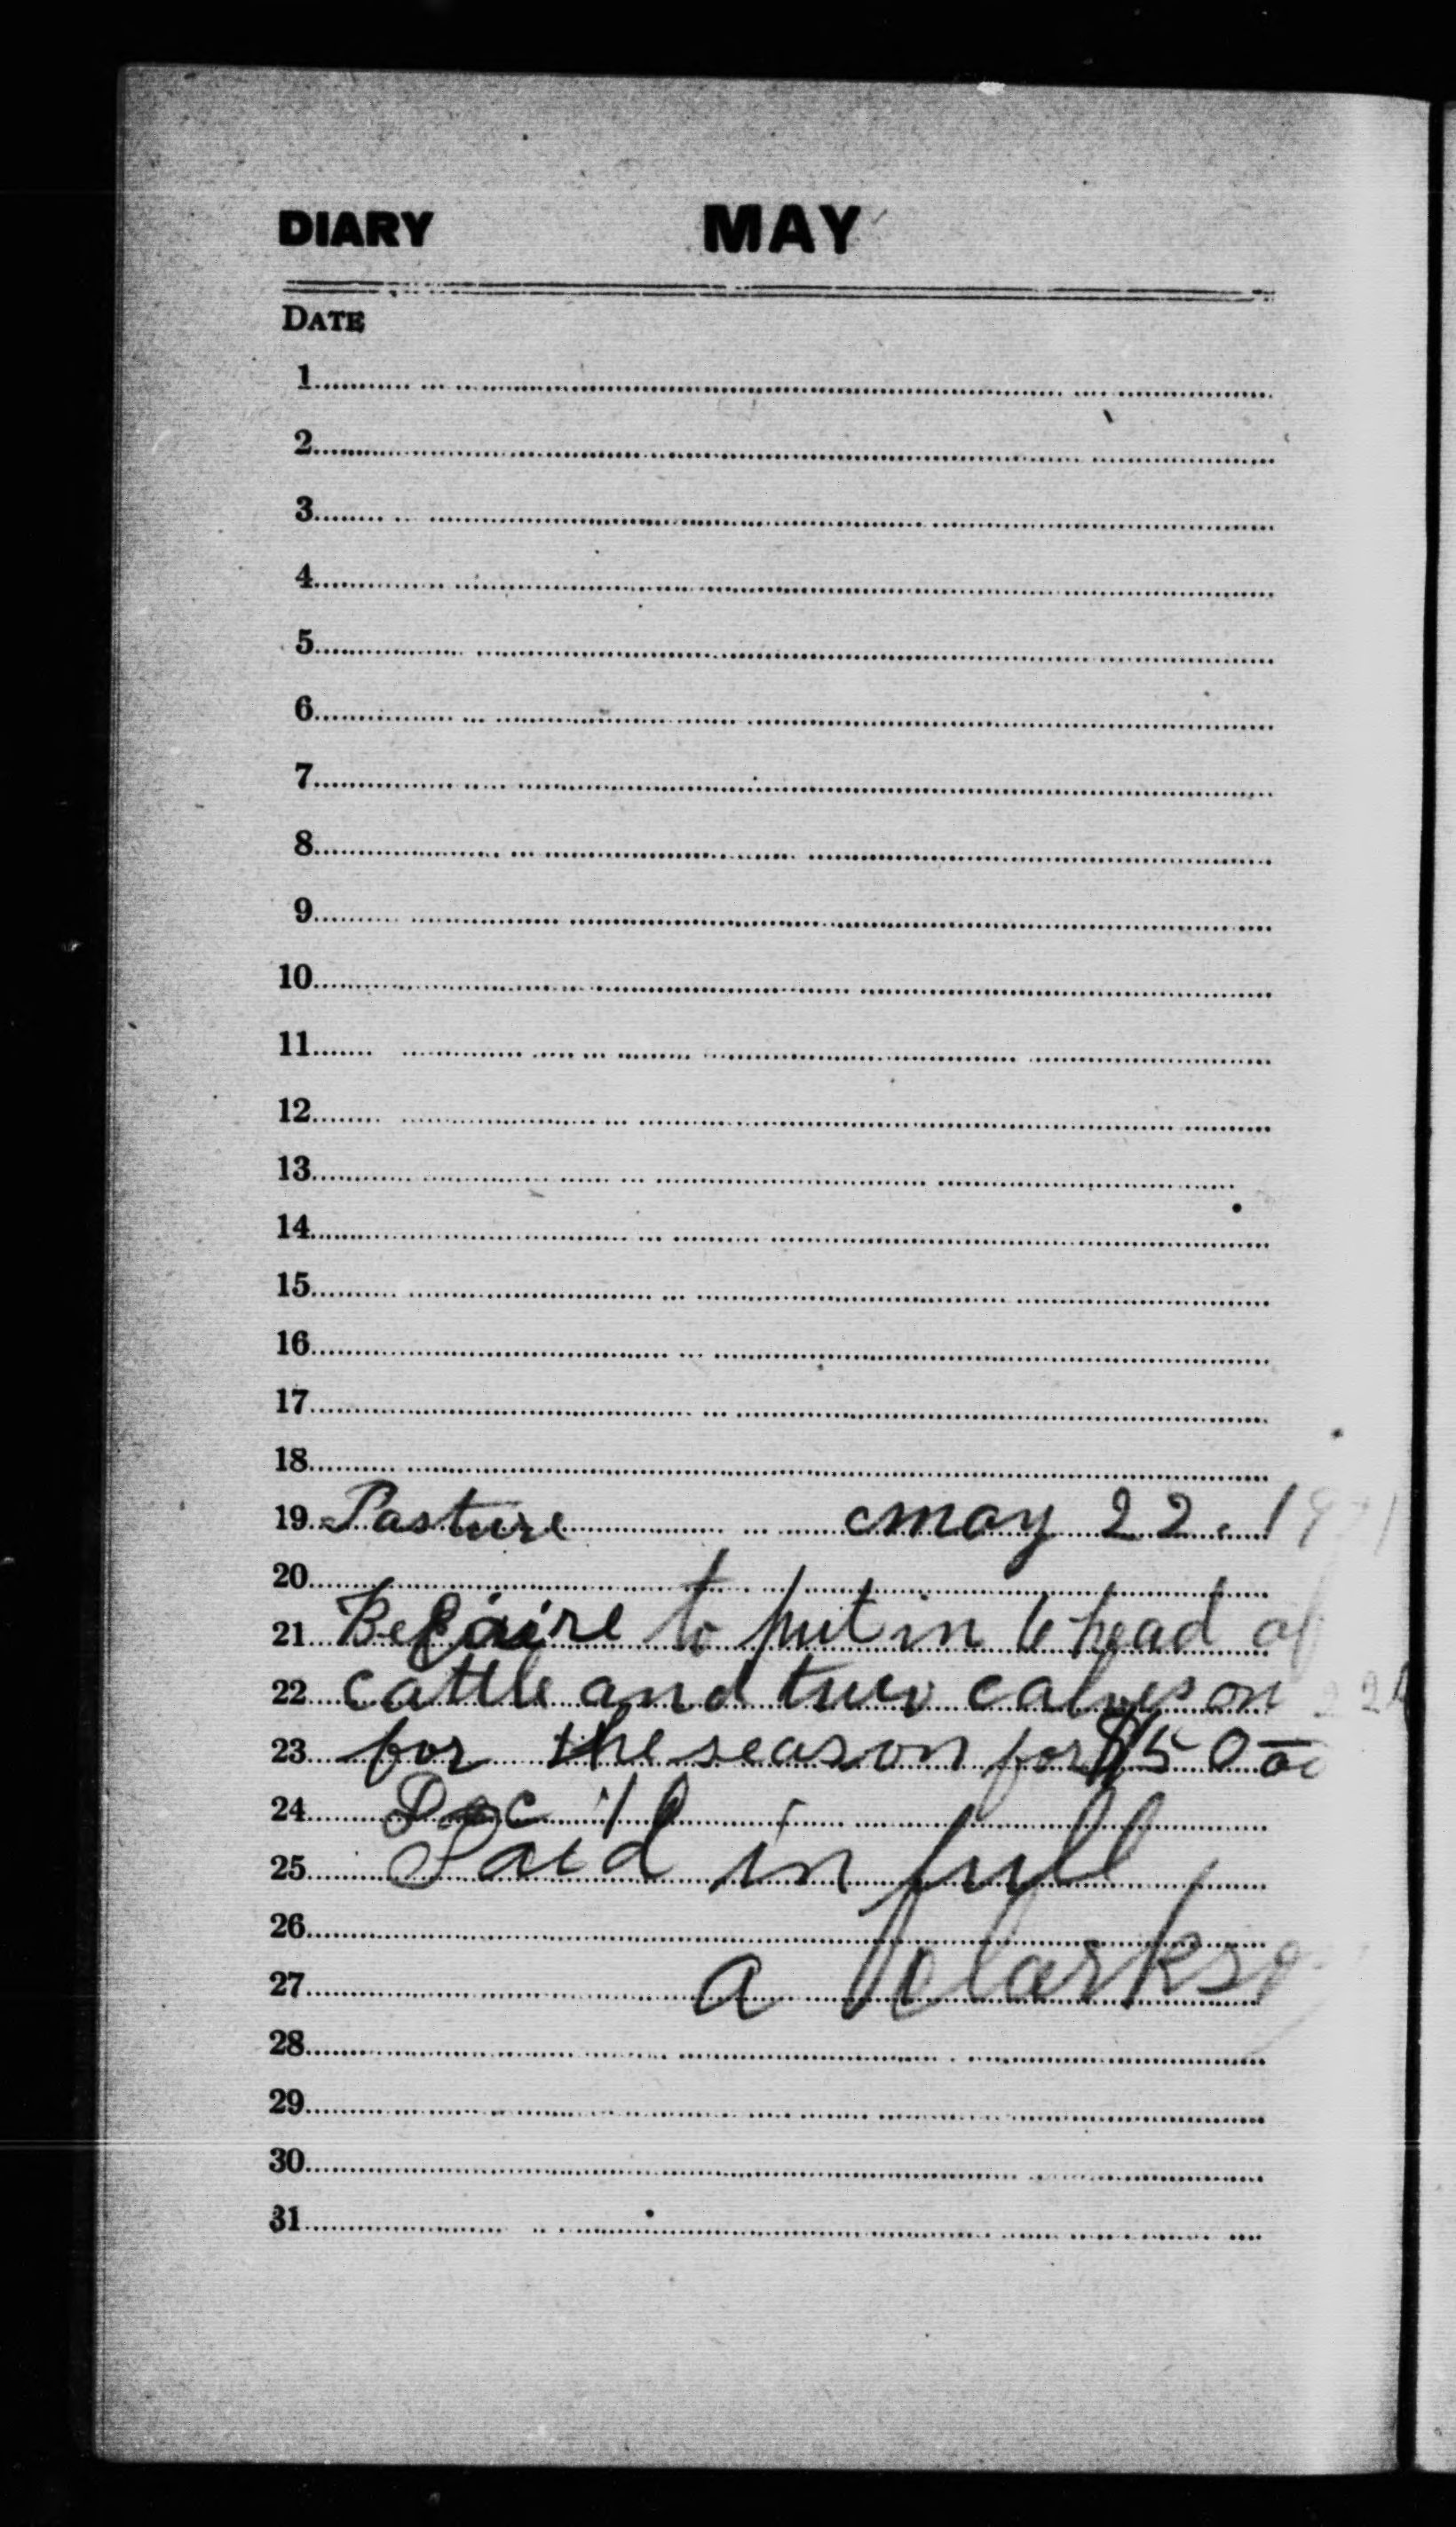 DIARY MAY
DATE
1
2
3
4
5
6
7
8
9
10
11
12
13
14
15
16
17
18
19 Pasture may 22. 19
20
21 to put in 6 head of
22 cattle and two calves on
23 for the season for $150 00
24 Dec
25 Paid in full
26
27 a Clarkso
28
29
30
31